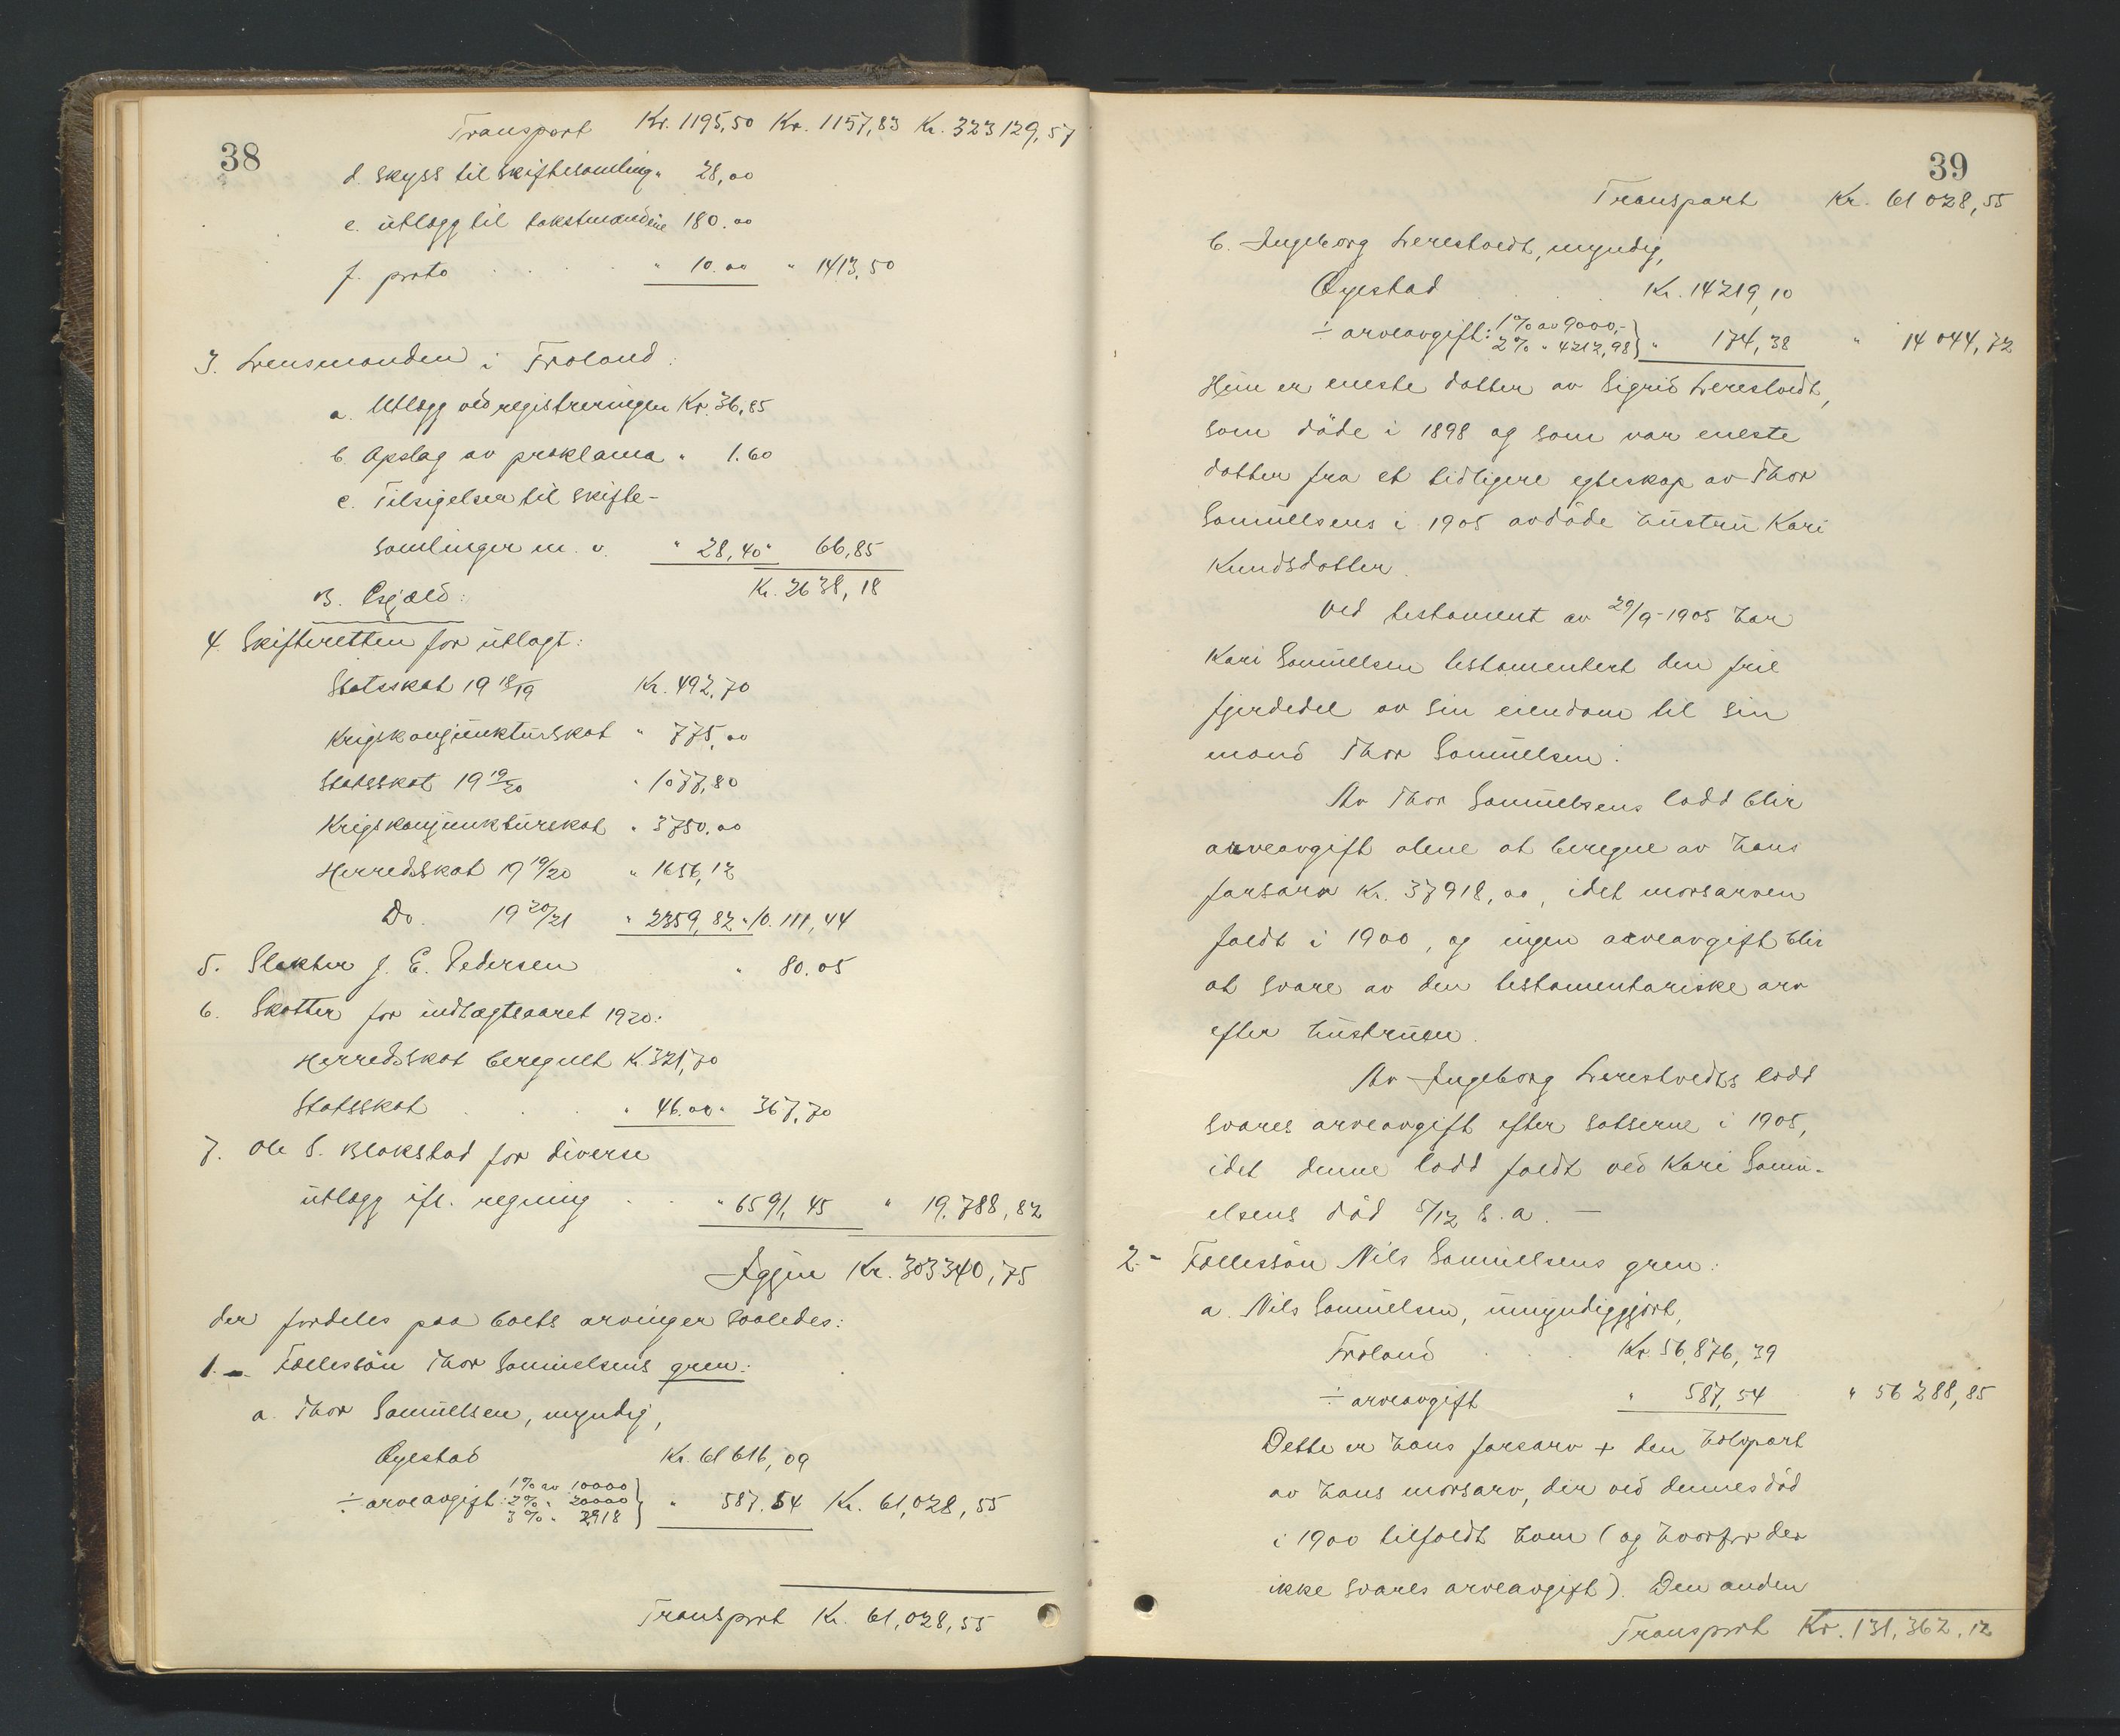 38
Transport Kr. 1195,50 Kr. 1157,83 Kr. 323129,57
d. Skyss til skiftesamling " 28,00
e. utlægg til takstmændene 180.00
f. porto . . . . " 10.00 " 1413,50
3. Lensmanden i Froland:
a. Utlægg ved registreringen Kr. 36,85
b. Opslag av proklama " 1.60
c. Tilsigelser til skifte-
samlinger m. v. " 28,40 " 66,85
Kr. 2638,18
B. Gjæld:
4. Skifteretten for utlagt:
Statsskat 19 18/19 Kr. 492,70
Krigskonjunkturskat " 775,00
Statsskat 19 19/20 " 1077,80
Krigskonjunkturskat " 3750.00
Herredsskat 19 19/20 " 1656,12
Do. 19 20/21 " 2359,82 " 10.111,44
5. Slakter J. E. Pedersen " 80.05
6. Skatter for indtægtsaaret 1920:
Herredsskat beregnet Kr. 321,70
Statsskat . . . " 46.00 " 367,70
7. Ole S. Blakstad for diverse
utlægg ifl. regning . . " 6591,45 " 19.788,82
Igjen Kr. 303340,75
der fordeles paa boets arvinger saaledes:
1. - Fællessön Thor Samuelsens gren:
a. Thor Samuelsen, myndig,
Øyestad Kr. 61616,09
÷ arveavgift: 1% av 10000
2% " 20000
3% " 2918 } " 587.54 Kr. 61,028,55
Transport Kr. 61,028,55
39
Transport Kr. 61028,55
b. Ingeborg Lerestvedt, myndig,
Øyestad . . . Kr. 14219,10
÷ arveavgift: 1% av 9000,-
2% " 4212,98 } " 174,38 " 14044,72
Hun er eneste datter av Sigrid Lerestvedt,
som döde i 1898 og som var eneste
datter fra et tidligere egteskap av Thor
Samuelsens i 1905 avdöde hustru Kari
Knudsdatter.
Ved testament av 29/9-1905 har
Kari Samuelsen testamentert den frie
fjerdedel av sin eiendom til sin
mand Thor Samuelsen.
Av Thor Samuelsens lodd blir
arveavgift alene at beregne av hans
farsarv Kr. 37918,00, idet morsarven
faldt i 1900, og ingen arveavgift blir
at svare av den testamentariske arv
efter hustruen.
Av Ingeborg Lerestvedts lodd
svares arveavgift efter satserne i 1905,
idet denne lodd faldt ved Kari Samu-
elsens död 5/12 s. a. —
2.- Fællessön Nils Samuelsens gren:
a. Nils Samuelsen, umyndiggjort,
Froland . . . Kr. 56,876,39
÷ arveavgift " 587,54 " 56288,85
Dette er hans farsarv + den halvpart
av hans morsarv, der ved dennes död
i 1900 tilfaldt ham (og hvorfor der
ikke svares arveavgift). Den anden
Transport Kr. 131,362,12